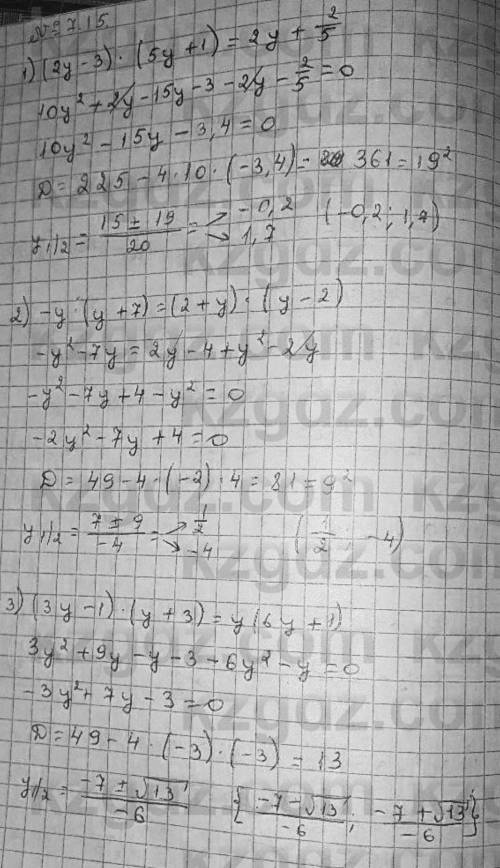 № 7.15
1) (2y - 3) · (5y + 1) = 2y + 2/5
10y² + 2y - 15y - 3 - 2y - 2/5 = 0
10y² - 15y - 3,4 = 0
D = 225 - 4 · 10 · (-3,4) = 361 = 19²
y1/2 = (15 ± 19)/20 = -0,2 1,7 (-0,2; 1,7)
2) -y · (y + 7) = (2 + y) · (y - 2)
-y² - 7y = 2y - 4 + y² - 2y
-y² - 7y + 4 - y² = 0
-2y² - 7y + 4 = 0
D = 49 - 4 · (-2) · 4 = 81 = 9²
y1/2 = (7 ± 9)/-4 = 1/2 -4 (1/2 -4)
3) (3y - 1) · (y + 3) = y(6y + 1)
3y² + 9y - y - 3 - 6y² - y = 0
-3y² + 7y - 3 = 0
D = 49 - 4 · (-3) · (-3) = 13
y1/2 = (-7 ± √13)/-6 {(-7 - √13)/-6; (-7 + √13)/-6}
kzgdz.com